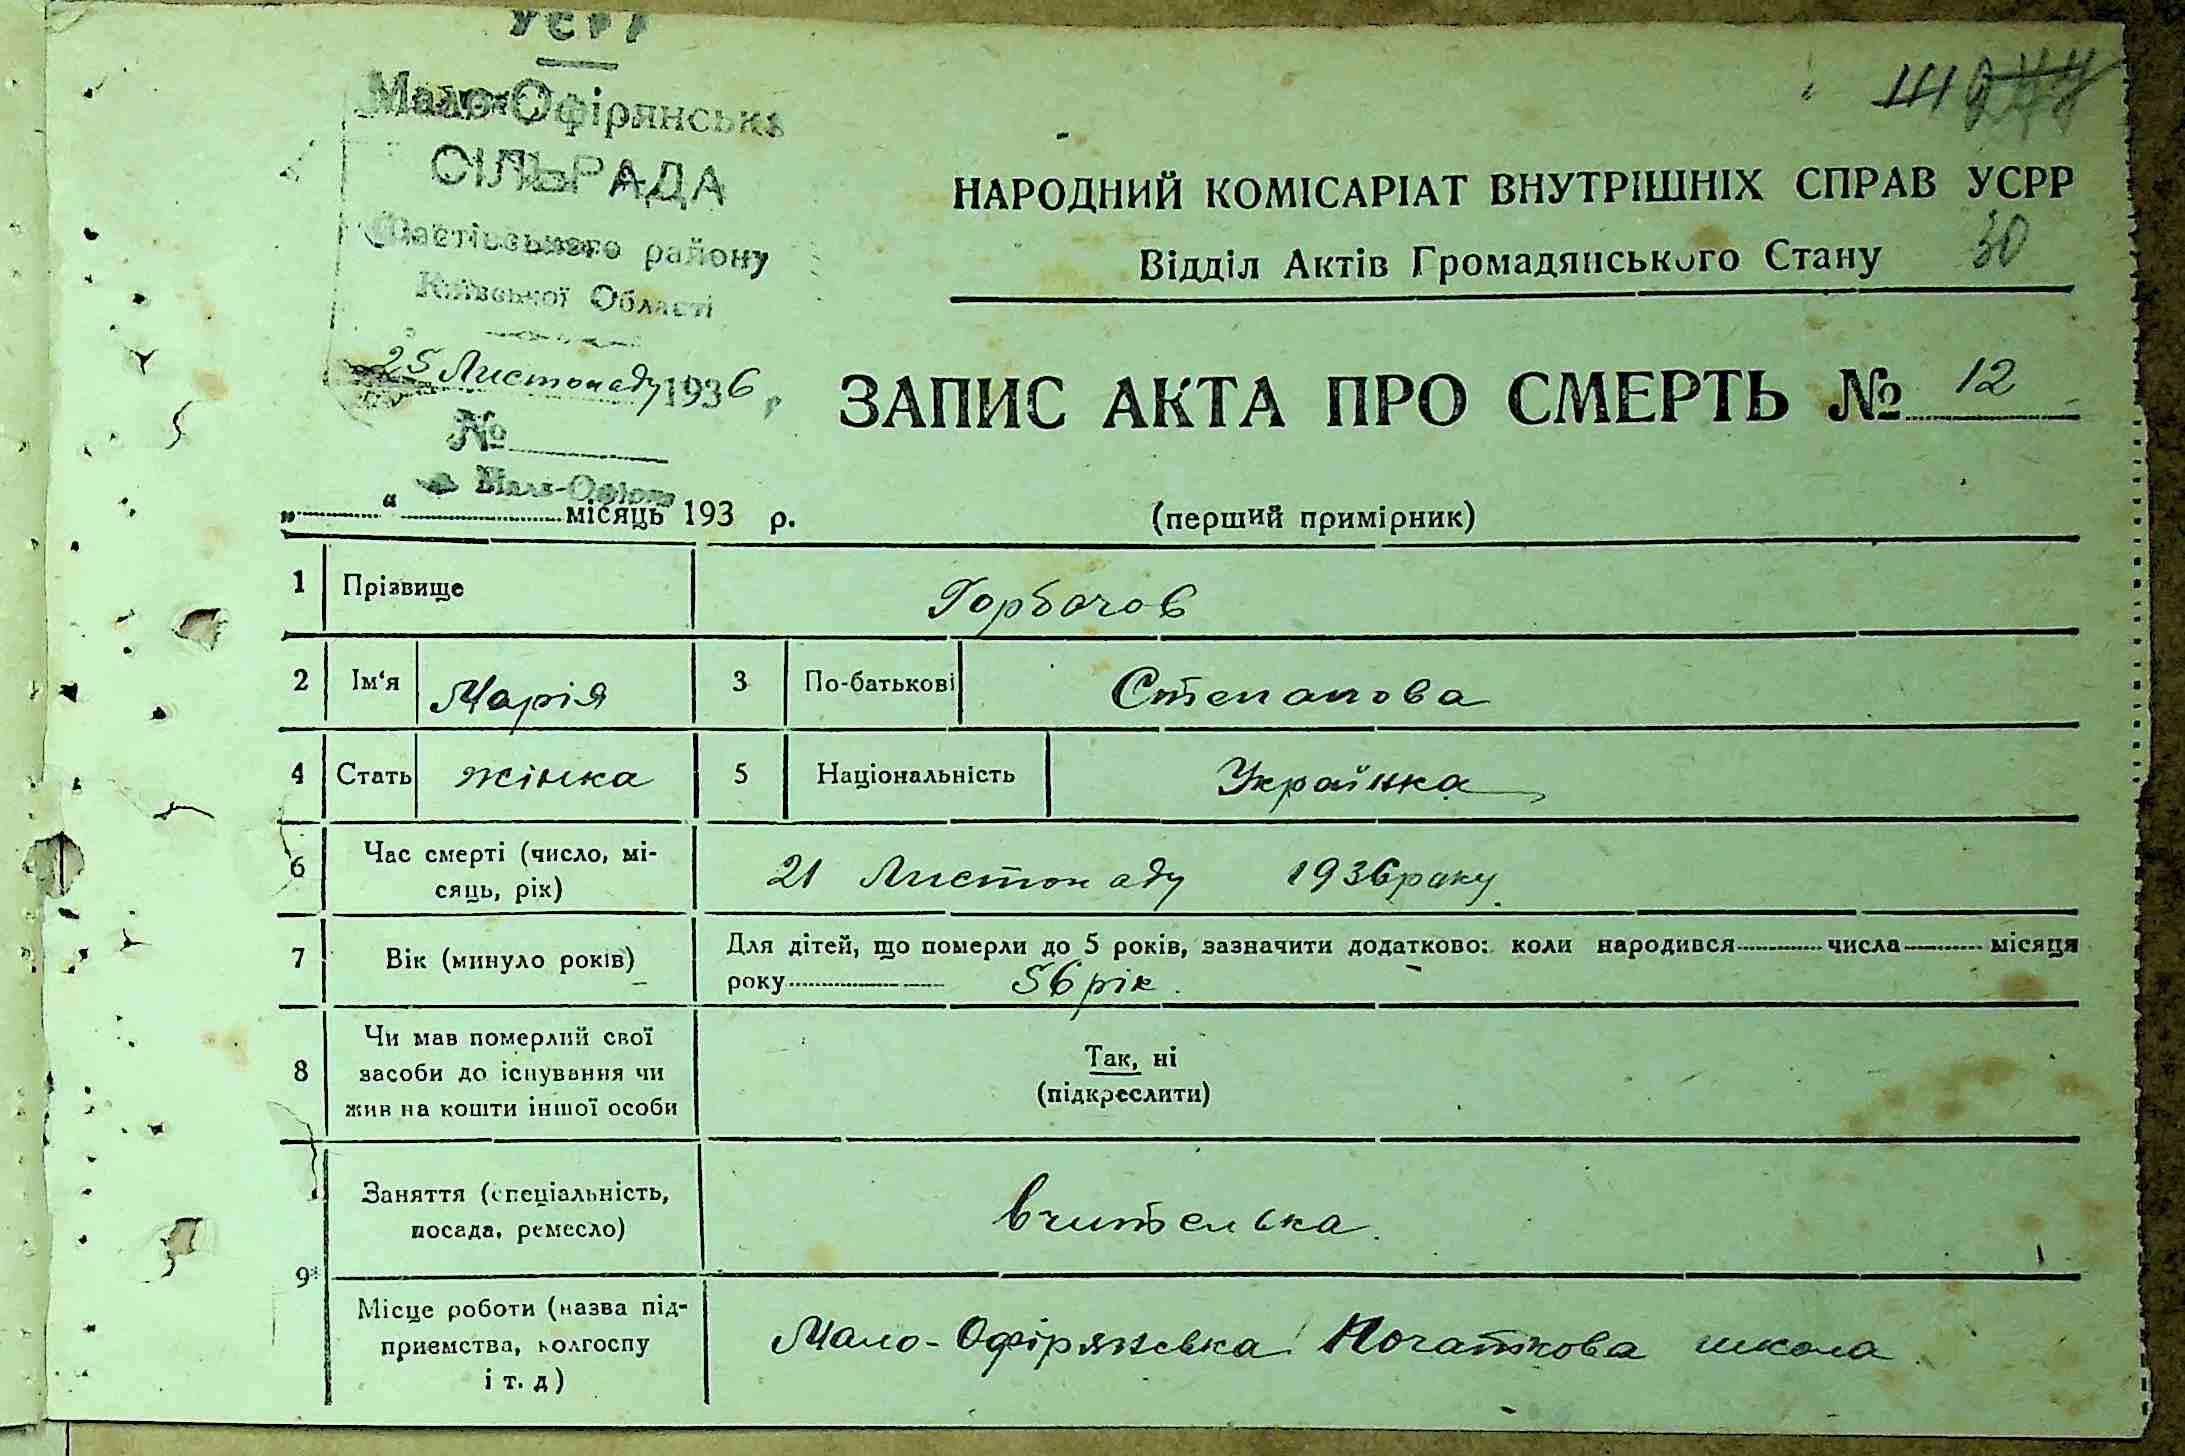 УСРР
Мало-Офірянська
СІЛЬРАДА
Фастівського району
Київської Області
25 Листопаду 1936 р.
№
Мала-Офірна
НАРОДНИЙ КОМІСАРІАТ ВНУТРІШНІХ СПРАВ УСРР
30
Відділ Актів Громадянського Стану
ЗАПИС АКТА ПРО СМЕРТЬ № 12
„ “ місяць 193 р.
(перший примірник)
1 Прізвище Горбачов
2 Ім‘я Марія 3 По-батькові Степанова
4 Стать жінка 5 Національність Українка
6 Час смерті (число, мі-
сяць, рік) 21 Листопаду 1936 року.
7 Вік (минуло років) Для дітей, що померли до 5 років, зазначити додатково: коли народився числа місяця
року 56 рік.
8 Чи мав померлий свої
засоби до існування чи
жив на кошти іншої особи
Так, ні
(підкреслити)
9 Заняття (спеціальність,
посада, ремесло) Вчителька.
Місце роботи (назва під-
приємства, колгоспу
і т. д) Мало-Офірянська Початкова школа